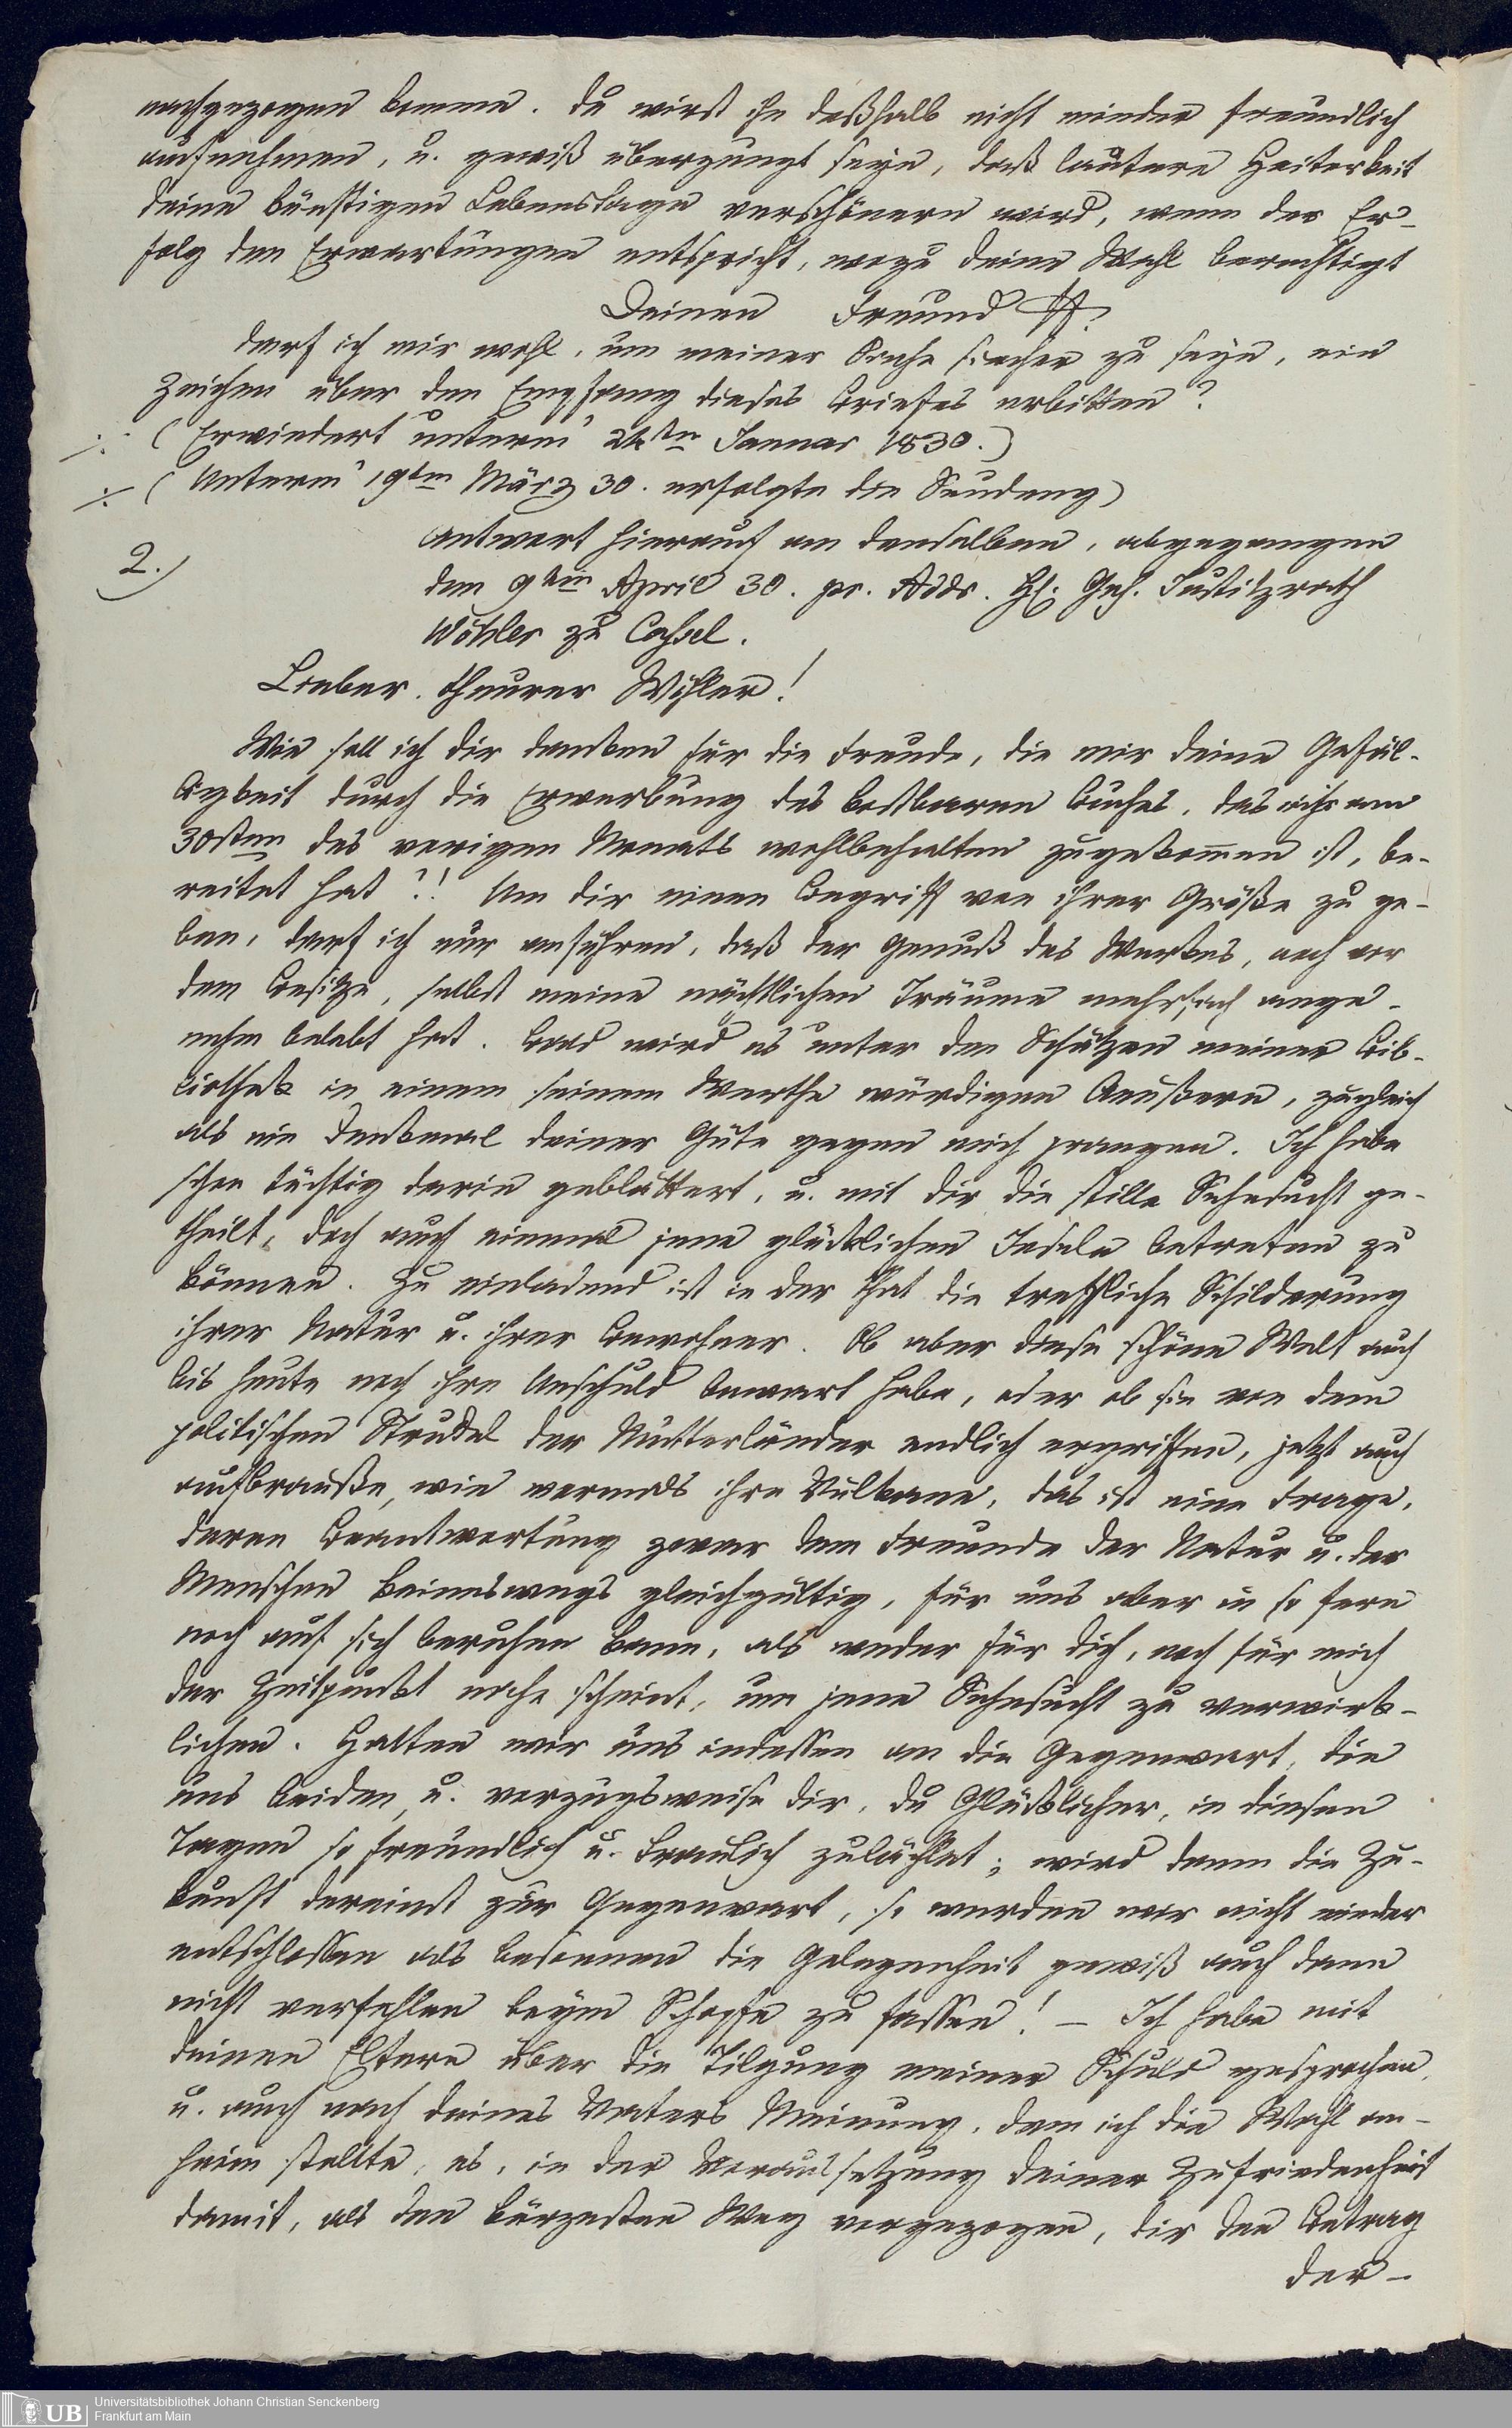 nachgezogen komme. Du wirst ihn deßhalb nicht minder freundlich
aufnehmen, u. gewiß überzeugt seyn, daß lautere Heiterkeit
deine künftigen Lebenstage verschönern wird, wenn der Er-
folg den Erwartungen entspricht, wozu deine Wahl berechtigt
Deinen Freund
Darf ich mir wohl, um meiner Sache sicher zu seyn, ein
Zeichen über den Empfang dieses Briefes erbitten?
(Erwiedert unterm 24ten Januar 1830.)
(Unterm 19ten März 30. erfolgte die Sendung)
2.) Antwort hierauf an denselben, abgegangen
den 9ten April 30. pr. Addr. H. Geh. Justitzrath
Wöhler zu Cassel.
Lieber, theurer Wöhler!
Wie soll ich dir danken für die Freude, die mir deine Gefäl-
ligkeit durch die Erwerbung des kostbaren Buches, das mir am
30sten des vorigen Monats wohlbehalten zugekommen ist, be-
reitet hat?! Um dir einen Begriff von ihrer Größe zu ge-
ben, darf ich nur anführen, daß der Genuß des Werkes, noch vor
dem Besitze, selbst meine nächtlichen Träume mehrfach ange-
nehm belebt hat. Bald wird es unter den Schätzen meiner Bib-
liothek in einem seinem Werthe würdigen Aeußern, zugleich
als ein Denkmal deiner Güte gegen mich prangen. Ich habe
schon tüchtig darin geblättert, u. mit dir die stille Sehnsucht ge-
theilt, doch auch einmal jene glücklichen Inseln betreten zu
können. Zu einladend ist in der That die treffliche Schilderung
ihrer Natur u. ihrer Bewohner. Ob aber diese schöne Welt auch
bis heute noch ihre Unschuld bewart habe, oder ob sie von dem
politischen Strudel der Mutterländer endlich ergriffen, jetzt auch
aufbrauße, wie vormals ihre Vulkane, das ist eine Frage,
deren Beantwortung zwar dem Freunde der Natur u. der
Menschen keineswegs gleichgültig, für uns aber in so fern
noch auf sich beruhen kann, als weder für dich, noch für mich
der Zeitpunkt nahe scheint, um jene Sehnsucht zu verwirk-
lichen. Halten wir uns indessen an die Gegenwart, die
uns beiden, u. vorzugsweise dir, du Glücklicher, in diesen
Tagen so freundlich u. traulich zulächlet; wird dann die Zu-
kunft dereinst zur Gegenwart, so werden wir nicht minder
entschlossen als besonnen die Gelegenheit gewiß auch dann
nicht verfehlen beym Schopfe zu fassen! – Ich habe mit
deinen Eltern über die Tilgung meiner Schuld gesprochen,
u. auch nach deines Vaters Meinung, dem ich die Wahl an-
heim stellte, es, in der Voraussetzung deiner Zufriedenheit
damit, als den kürzesten Weg vorgezogen, dir den Betrag
der-
UB
Universitätsbibliothek Johann Christian Senckenberg
Frankfurt am Main